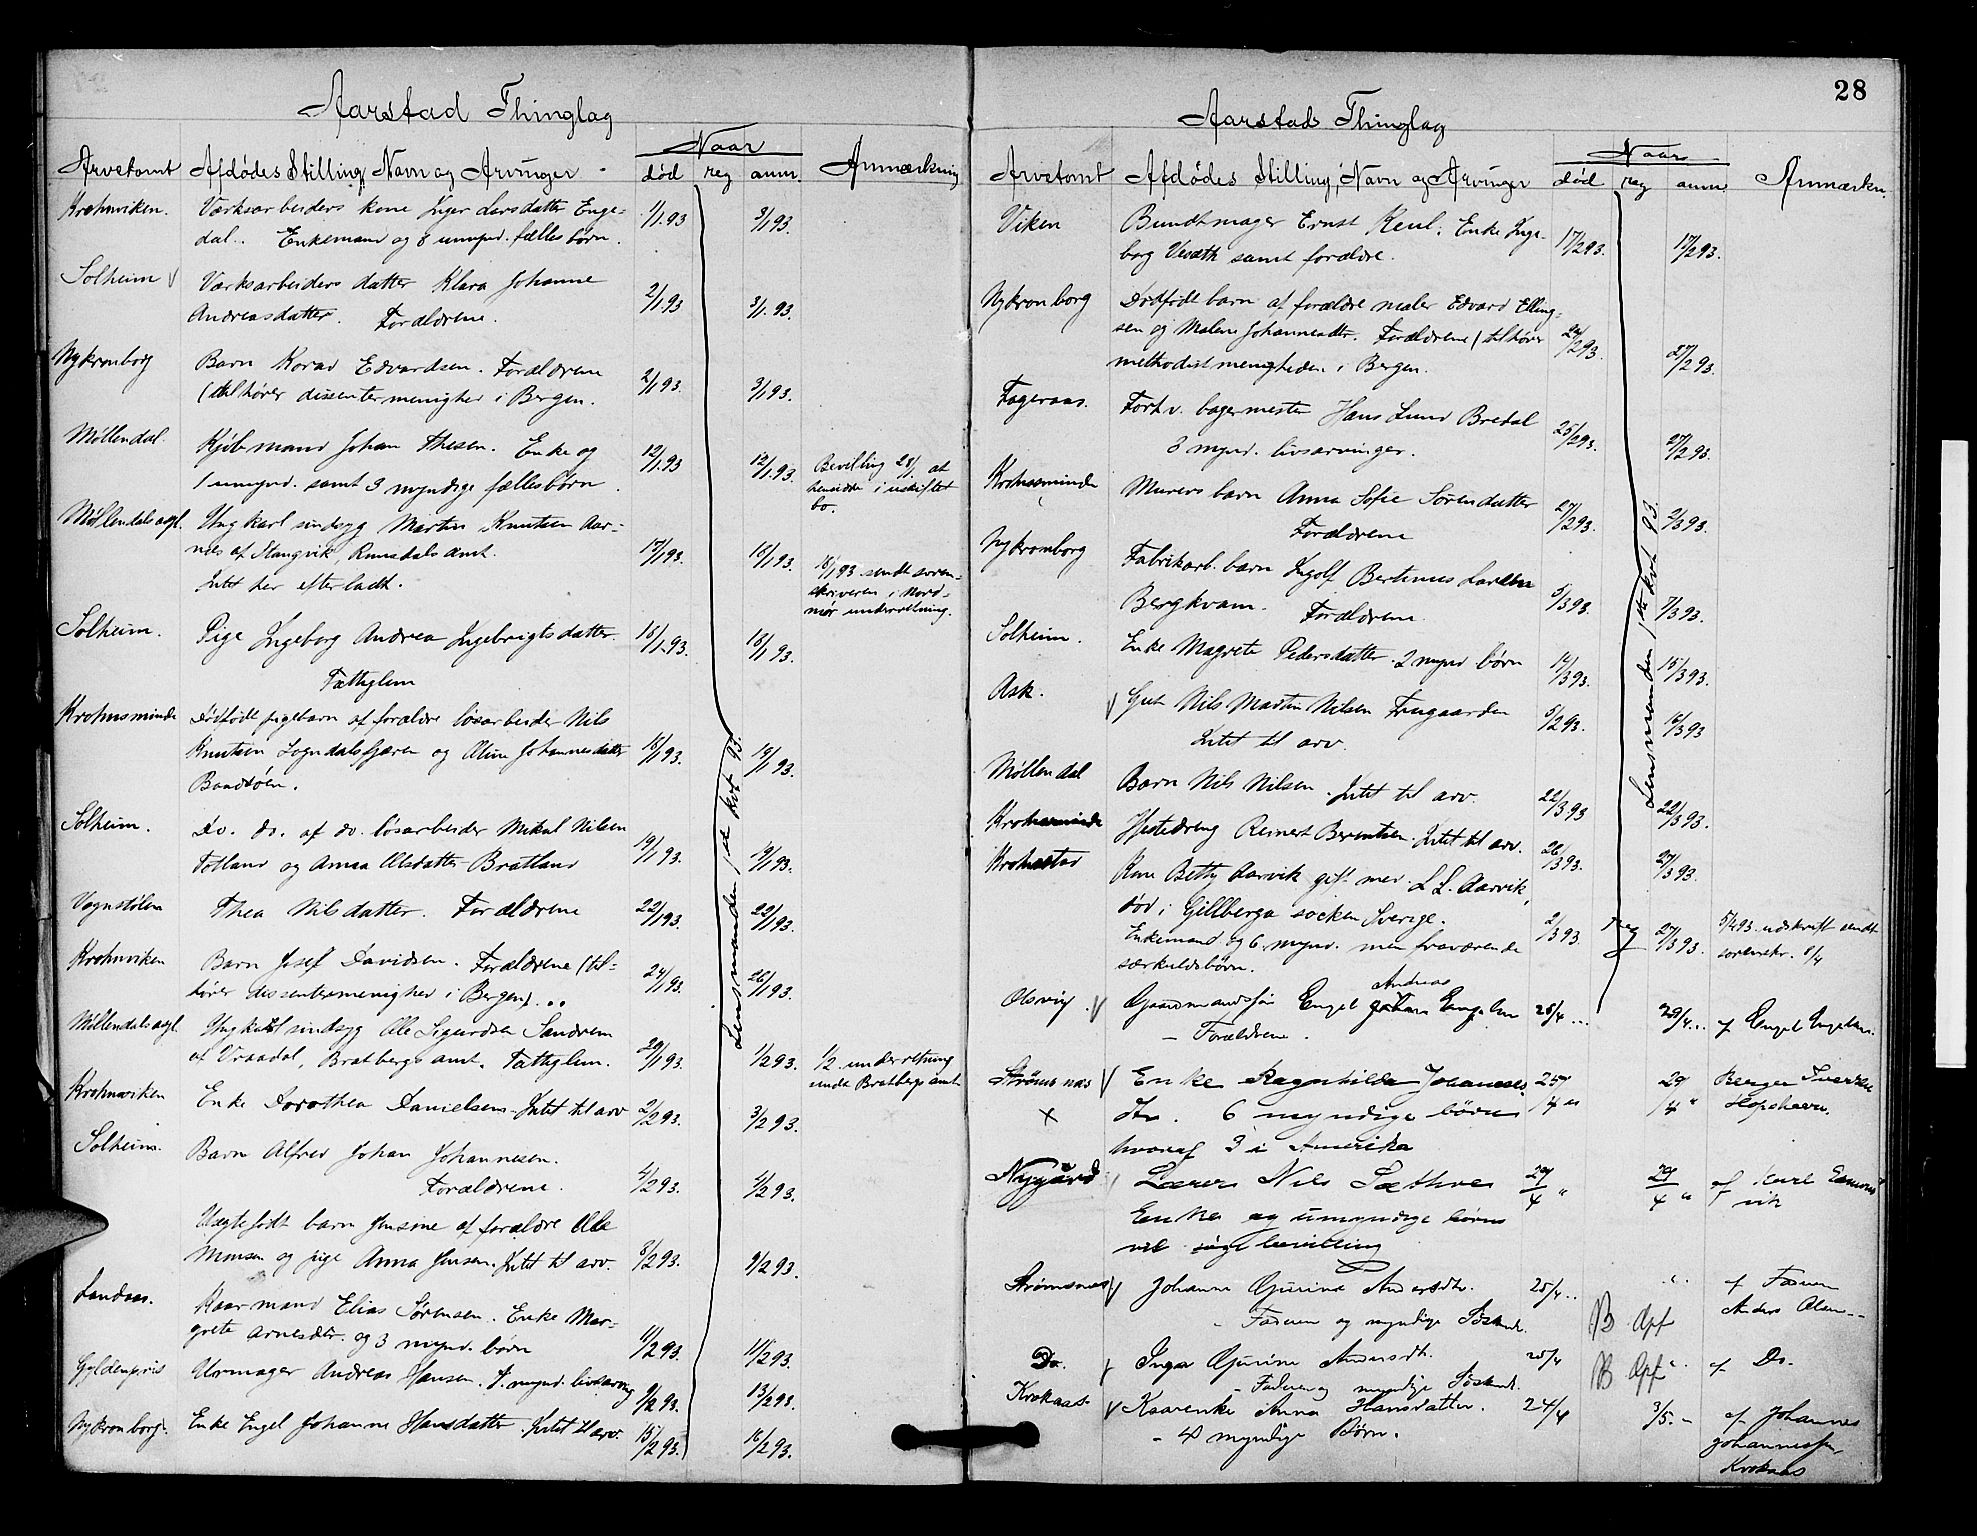 Aarstad Thinglag
Naar
Arvetomt Afdødes Stilling, Navn og Arvinger død reg anm. Anmærkning
Krohnviken. Værksarbeiders kone Inger Larsdatter Enge= 1/1.93 3/1.93.
dal. Enkemand og 8 umynd. fælles børn.
Solheim Værksarbeiders datter Klara Johanne 2/1.93 3/1.93.
Andreasdatter. Forældrene.
Nykronborg Barn Korad Edvardsen. Forældrene 2/1.93. 3/1.93.
(tilhører dissentermenighed i Bergen.
Møllendal Kjøbmand Johan Thesen. Enke og 12/1.93 12/1.93. Bevilling 28/1 at
1 umynd. samt 3 myndige fællesbørn. hensidde i uskiftet
bo.
Møllendals asyl. Ungkarl sindsyg Martin Knutsen Aar-
nes af Stangvik, Romsdals amt. 17/1.93. 18/1.93. 18/1 93 sendt soren-
Intet her efterladt. skriveren i Nord-
mør underretning.
Solheim. Pige Ingeborg Andrea Ingebrigtsdatter. 18/1.93. 18/1.93.
Fattiglem
Krohnsminde Dødfødt pigebarn af forældre løsarbeider Nils
Knutsen Sogndalsfjæren og Oline Johannesdatter 18/1.93. 19/1.93.
Bondsøen.
Solheim. Do. do. af do. løsarbeider Mikal Nilsen
Totland og Anna Olsdatter Bratland 19/1.93. 19/1.93.
Vognstølen Thea Nilsdatter. Forældrene 22/1.93. 22/1.93.
Krohnviken Barn Josef Davidsen. Forældrene (til=
hører dissentermenighed i Bergen). 24/1.93. 26/1.93.
Møllendals asyl. Ungkarl sindsyg Ole Sigurdsen Sandrem
af Vraadal, Bratbergs amt. Fattiglem. 29/1.93. 1/2 93. 1/2 underretning
sendt Bratbergs amt
Krohnviken Enke Dorothea Danielsen. Intet til arv 2/2 93. 3/2 93.
Solheim. Barn Alfred Johan Johannesen.
Forældrene. 4/2 93. 4/2 93.
Uægtefødt barn Jensine af forældre Ole
Monsen og pige Anna Jensen. Intet til arv. 8/2 93. 9/2 93.
Landaas. Kaarmand Elias Sørensen. Enke Mar-
grete Arnesdtr. og 3 mynd. børn 11/2 93. 11/2 93.
Gyldenpris Urmager Andreas Hansen. 1 mynd. livsarving 9/2 93. 13/2 93.
Nykronborg. Enke Engel Johanne Hansdatter. Intet til arv. 15/2 93. 16/2 93.
Lensmanden 1ste kvt 93.
28
Aarstad Thinglag
Naar
Arvetomt Afdødes Stilling, Navn og Arvinger død reg anm. Anmærkn.
Viken Bundtmager Ernst Keul. Enke Inge-
borg Vesæth samt forældre. 17/2 93. 17/2 93.
Nykronborg Dødfødt barn af forældre maler Edvard Elling-
sen og Malene Johannesdtr. Forældrene (tilhører 24/2 93.
methodistmenigheden i Bergen. 27/2 93.
Fageraas. Forhv. bagermester Hans Lund Bredal
3 mynd. livsarvinger. 25/2 93. 27/2 93.
Krohnsminde Murers barn Anna Sofie Sørensdatter
Forældrene 27/2 93. 2/3 93.
Nykronborg Fabrikarb. barn Ingolf Bertinus Larsen
Bergkvam. Forældrene. 5/3 93. 7/3 93.
Solheim. Enke Magrete Pedersdatter. 2 mynd børn 14/3 93. 15/3 93.
Ask. Gut Nils Martin Nilsen Frugaarden 5/2 93. 16/3 93
Intet til arv.
Møllendal Barn Nils Nilsen. Intet til arv. 22/3 93 22/3 93.
Krohnsminde Hjstedreng Reinert Berentsen. Intet til arv. 26/3 93. 27/3 93.
Krohnstad Kone Betty Aarvik gift med L. L. Aarvik,
død i Gillberga socken Sverige. 2/3 93. reg 27/3 93. 5/4 93. udskrift sendt
Enkemand og 6 mynd. men fraværende sorenskr. 8/4
særkuldsbørn.
Andreas
Olsvig Gaardmandssøn Engel Johan Engelsen 28/4 ... 29/4 ... af Engel Engelsen.
- Forældrene.
Strømsnæs Enke Ragnhilda Johannes 25/4 " 29/4 " Berger Sverke
x dtr. 6 myndige børn Hopshavn.
hvoraf 3 i Amerika
Nygård Lærer Nils Sæthre 29/4 " 29/4 " af Karl Edmunds
Enke og umyndige børn vik
vil søge bevilling
Strømsnæs Johanne Gurine Andersdtr. 25/4 ... af Faderen
- Faderen og myndige Søskende. B Opf Anders Olsen
Do. Inga Gurine Andersdtr. 25/4 B Opf af Do.
- Faderen og myndige Søskende.
Krokaas Kaarenke Anna Hansdatter. 24/4 3/5. - af Johannes
- 4 myndige Børn. Johannesen
Krokaas
Lensmanden 1ste kvt 93.